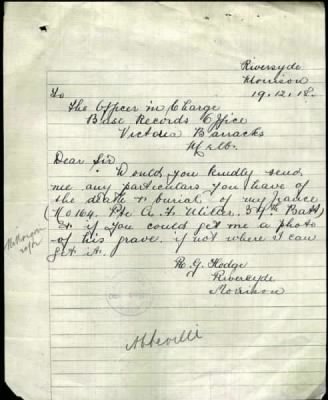 Riversyde
Morrison
19.12.18.
To
The Officer in Charge
Base Records Office
Victoria Barracks
Melb.
Dear Sir,
Would you kindly send
me any particulars you have of
the death & burial of my fiance
Pte A. F.
& if you could get me a photo
of his grave. if not where I can
get it.
R. G. Hodge
Riversyde
Morrison
Abbeville